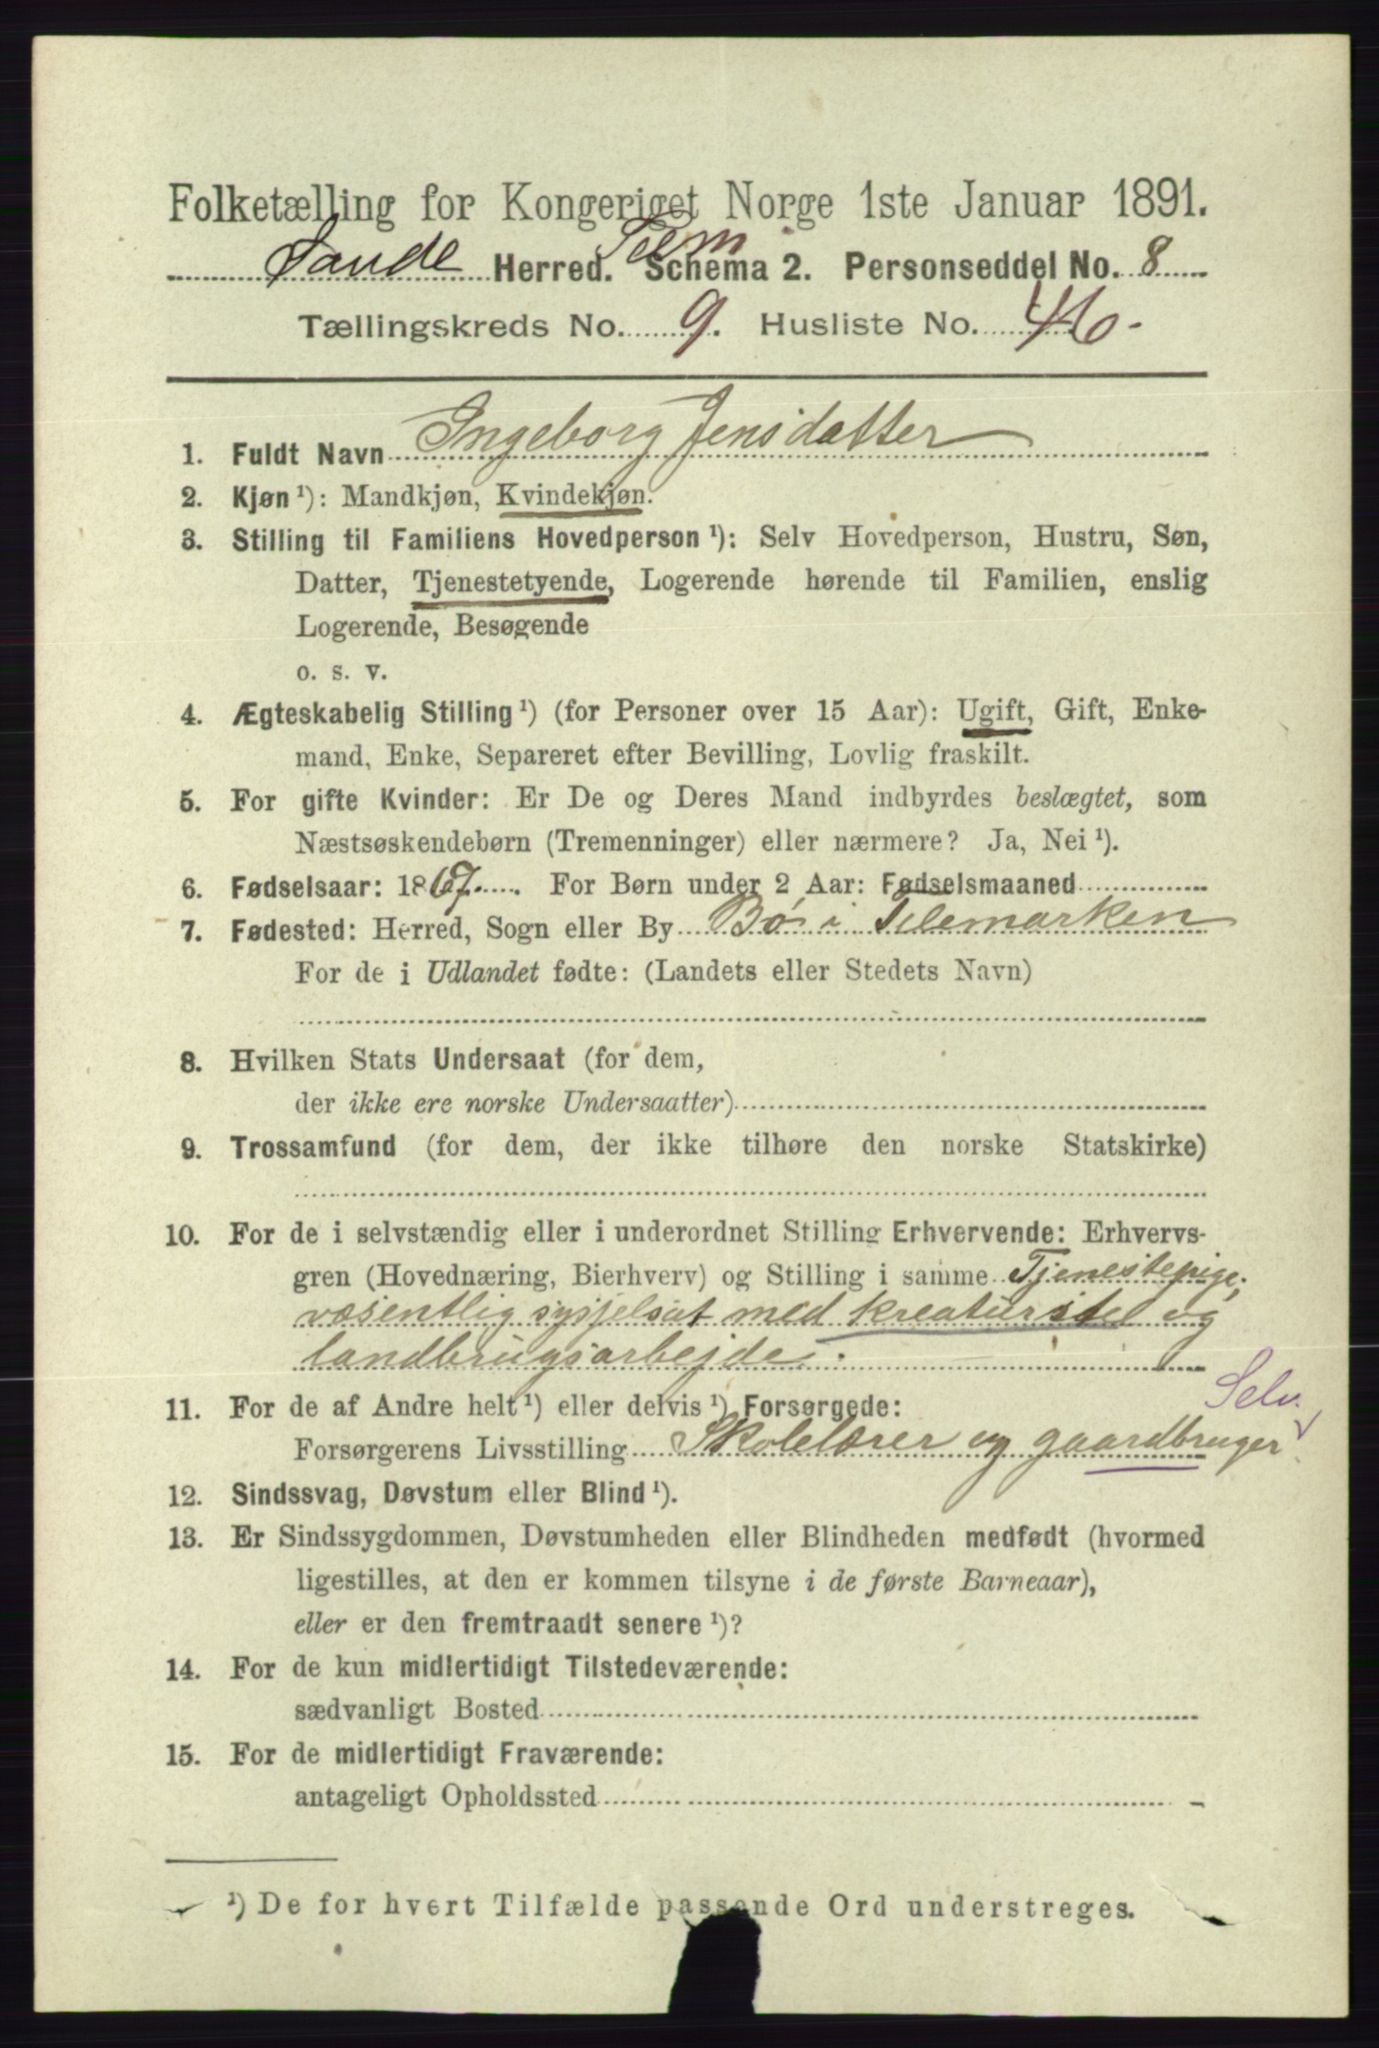 Folketælling for Kongeriget Norge 1ste Januar 1891.
Saude Herred. Telm Schema 2. Personseddel No. 8
Tællingskreds No. 9. Husliste No. 46.
1. Fuldt Navn Ingeborg Jensdatter
2. Kjøn ¹): Mandkjøn, Kvindekjøn.
3. Stilling til Familiens Hovedperson ¹): Selv Hovedperson, Hustru, Søn,
Datter, Tjenestetyende, Logerende hørende til Familien, enslig
Logerende, Besøgende
o. s. v.
4. Ægteskabelig Stilling ¹) (for Personer over 15 Aar): Ugift, Gift, Enke-
mand, Enke, Separeret efter Bevilling, Lovlig fraskilt.
5. For gifte Kvinder: Er De og Deres Mand indbyrdes beslægtet, som
Næstsøskendebørn (Tremenninger) eller nærmere? Ja, Nei ¹).
6. Fødselsaar: 1867. For Børn under 2 Aar: Fødselsmaaned
7. Fødested: Herred, Sogn eller By Bø i Telemarken
For de i Udlandet fødte: (Landets eller Stedets Navn)
8. Hvilken Stats Undersaat (for dem,
der ikke ere norske Undersaatter)
9. Trossamfund (for dem, der ikke tilhøre den norske Statskirke)
10. For de i selvstændig eller i underordnet Stilling Erhvervende: Erhvervs-
gren (Hovednæring, Bierhverv) og Stilling i samme Tjenestepige,
væsentlig sysselsat med kreaturstel og
landbrugsarbejde.
Selv.
11. For de af Andre helt ¹) eller delvis ¹) Forsørgede:
Forsørgerens Livsstilling Skolelærer og gaardbruger
12. Sindssvag, Døvstum eller Blind ¹).
13. Er Sindssygdommen, Døvstumheden eller Blindheden medfødt (hvormed
ligestilles, at den er kommen tilsyne i de første Barneaar),
eller er den fremtraadt senere ¹)?
14. For de kun midlertidigt Tilstedeværende:
sædvanligt Bosted
15. For de midlertidigt Fraværende:
antageligt Opholdssted
¹) De for hvert Tilfælde passende Ord understreges.